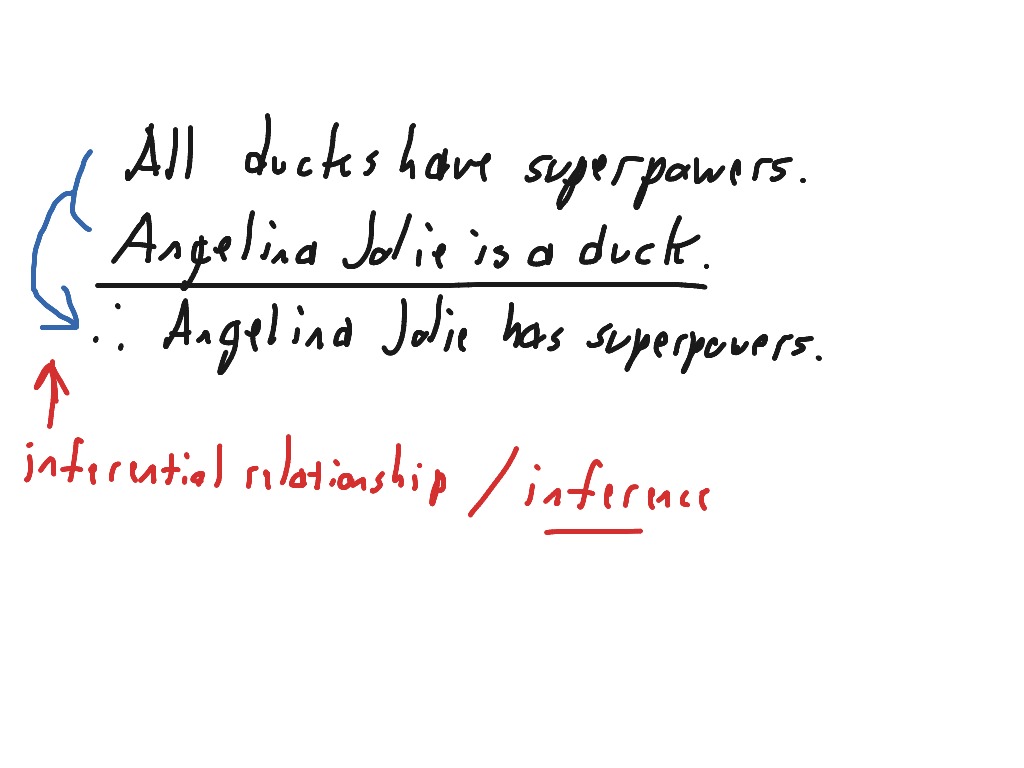 All ducks have superpowers.
Angelina Jolie is a duck.
∴ Angelina Jolie has superpowers.
inferential relationship / inference